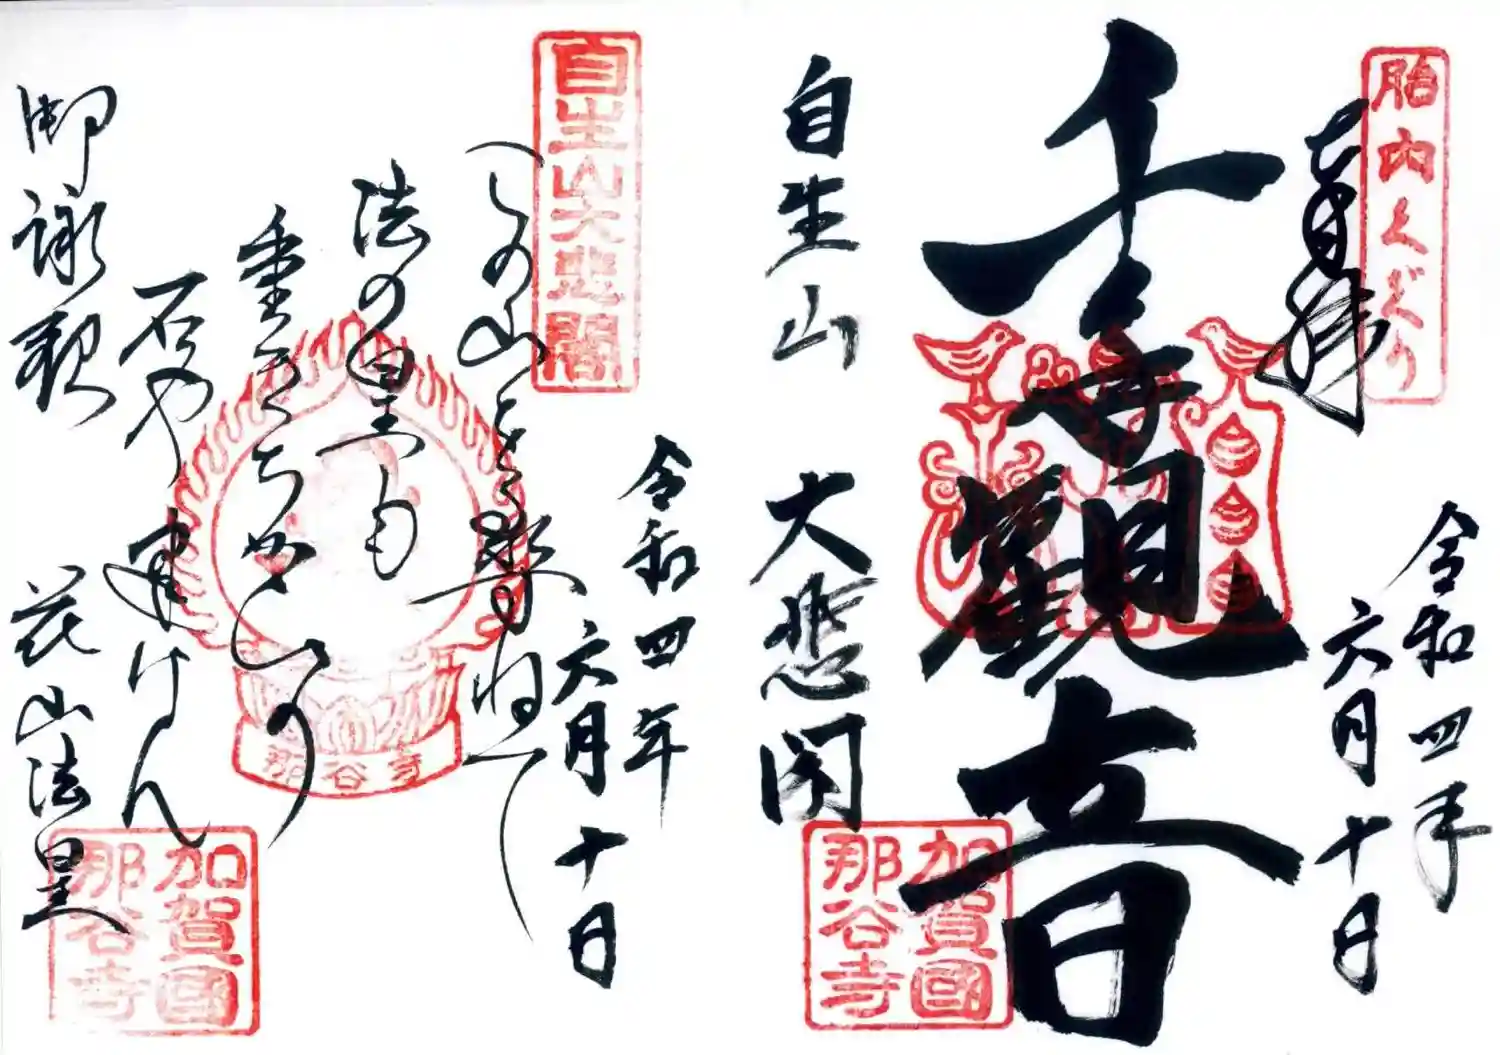 胎内くぐり
奉拝
令和四年
六月十日
千手觀音
自生山
大悲閣
加賀國
那谷寺
自生山大悲閣
令和四年
六月十日
この山
法の皇も
重き
石や建けん
御詠歌
花山法皇
那谷寺
加賀國
那谷寺